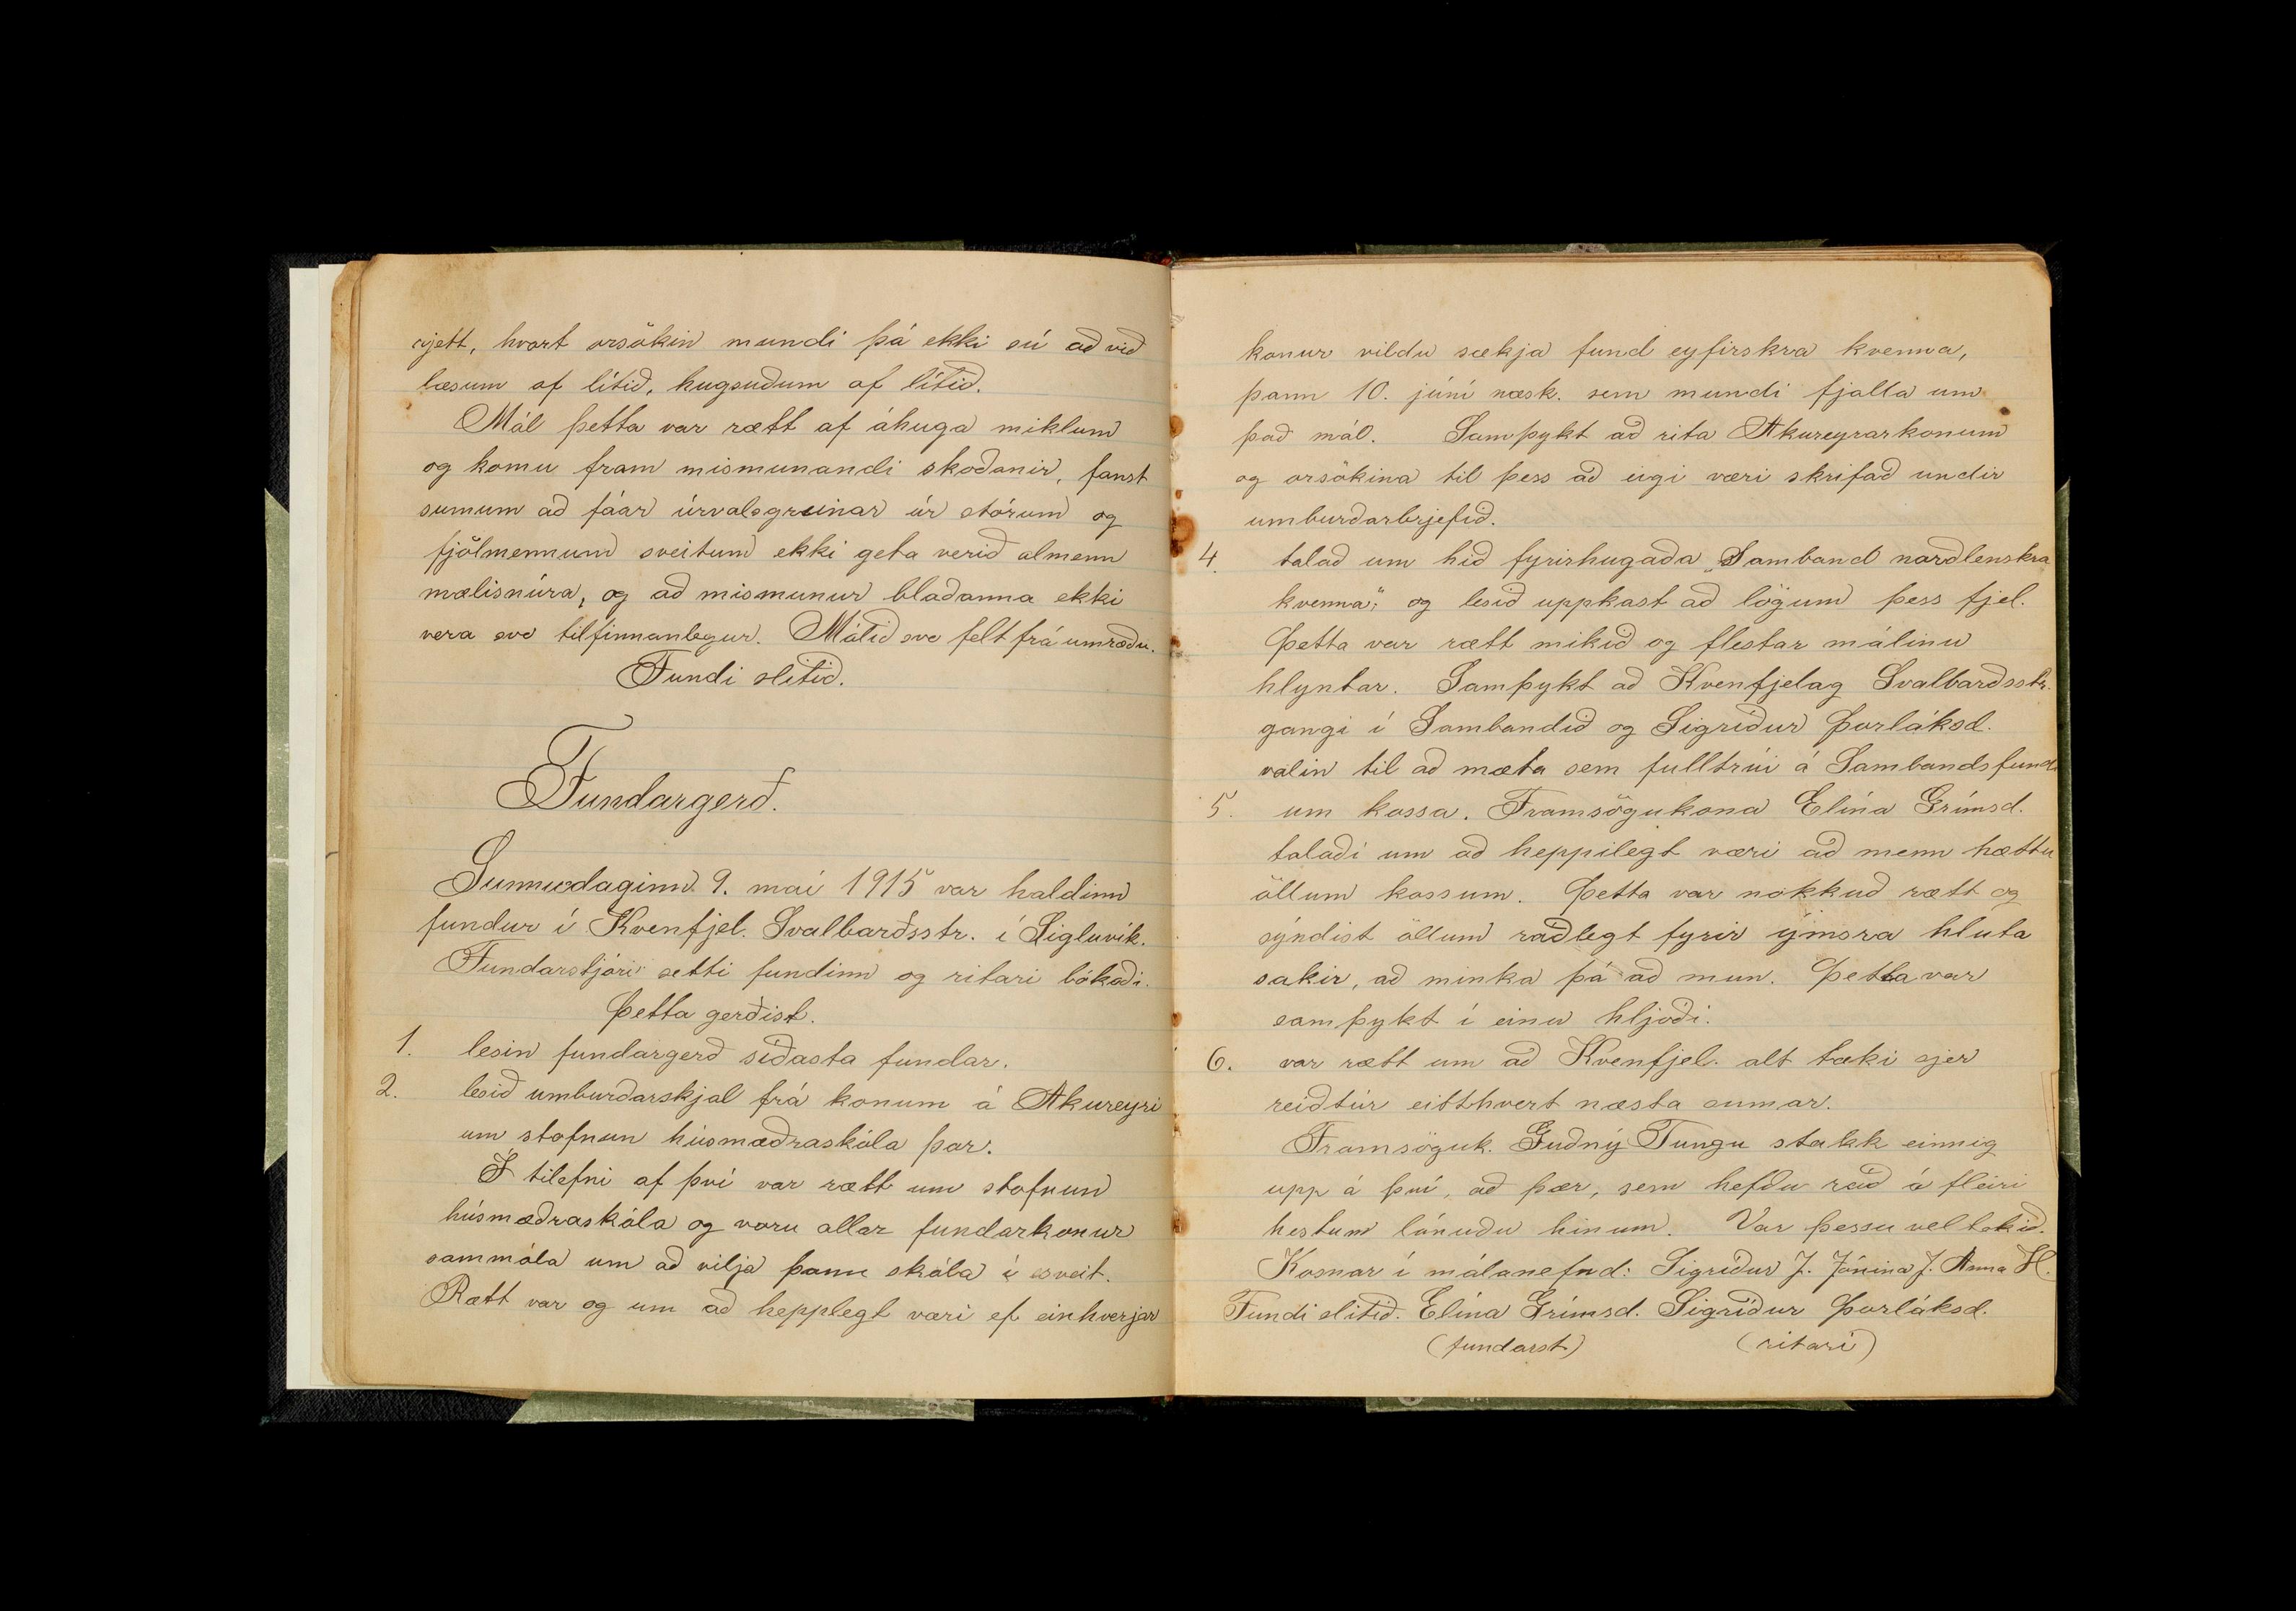 rjett, hvort orsökin mundi þá ekki sú að við
læsum of lítið, hugsuðum of lítið.
Mál þetta var rætt af áhuga miklum
og komu fram mismunandi skoðanir, fanst
sumum að fáar úrvalsgreinar úr stórum og
fjölmennum sveitum ekki geta verið almenn
mælisnúra, og að mismunur blaðanna ekki
vera svo tilfinnanlegur. Málið svo felt frá umræðu.
Fundi slitið.
Fundargerð.
Sunnudaginn 9. maí 1915 var haldinn
fundur í Kvenfjel. Svalbarðsstr. í Sigluvík.
Fundarstjóri setti fundinn og ritari bókaði.
Þetta gerðist.
1. lesin fundargerð síðasta fundar.
2. lesið umburðarskjal frá konum á Akureyri
um stofnun húsmæðraskóla þar.
Í tilefni af því var rætt um stofnun
húsmæðraskóla og voru allar fundarkonur
sammála um að vilja þann skóla í sveit.
Rætt var og um að hepplegt væri ef einhverjar
konur vildu sækja fund eyfirskra kvenna,
þann 10. júní næsk. sem mundi fjalla um
það mál. Samþykt að rita Akureyrarkonum
og orsökina til þess að eigi væri skrifað undir
umburðarbrjefið.
4. talað um hið fyrirhugaða „Samband norðlenskra
kvenna", og lesið uppkast að lögum þess fjel.
Þetta var rætt mikið og flestar málinu
hlyntar. Samþykt að Kvenfjelag Svalbarðsstr.
gangi í Sambandið og Sigríður Þorláksd.
valin til að mæta sem fulltrúi á Sambandsfundi
5. um kossa. Framsögukona Elína Grímsd.
talaði um að heppilegt væri að menn hættu
öllum kossum. Þetta var nokkuð rætt og
sýndist öllum raðlegt fyrir ýmsra hluta
sakir, að minka þá að mun. Þetta var
samþykt í einu hljóði.
6. var rætt um að Kvenfjel. alt tæki sjer
reiðtúr eitthvert næsta sumar.
Framsöguk. Guðný Tungu stakk einnig
upp á því, að þær, sem hefðu ráð á fleiri
hestum lánuðu hinum. Var þessu vel tekið.
Kosnar í málanefnd: Sigríður J. Jónína J. Anna H.
Fundi slitið. Elína Grímsd. Sigríður Þorláksd.
(fundarst) (ritari)